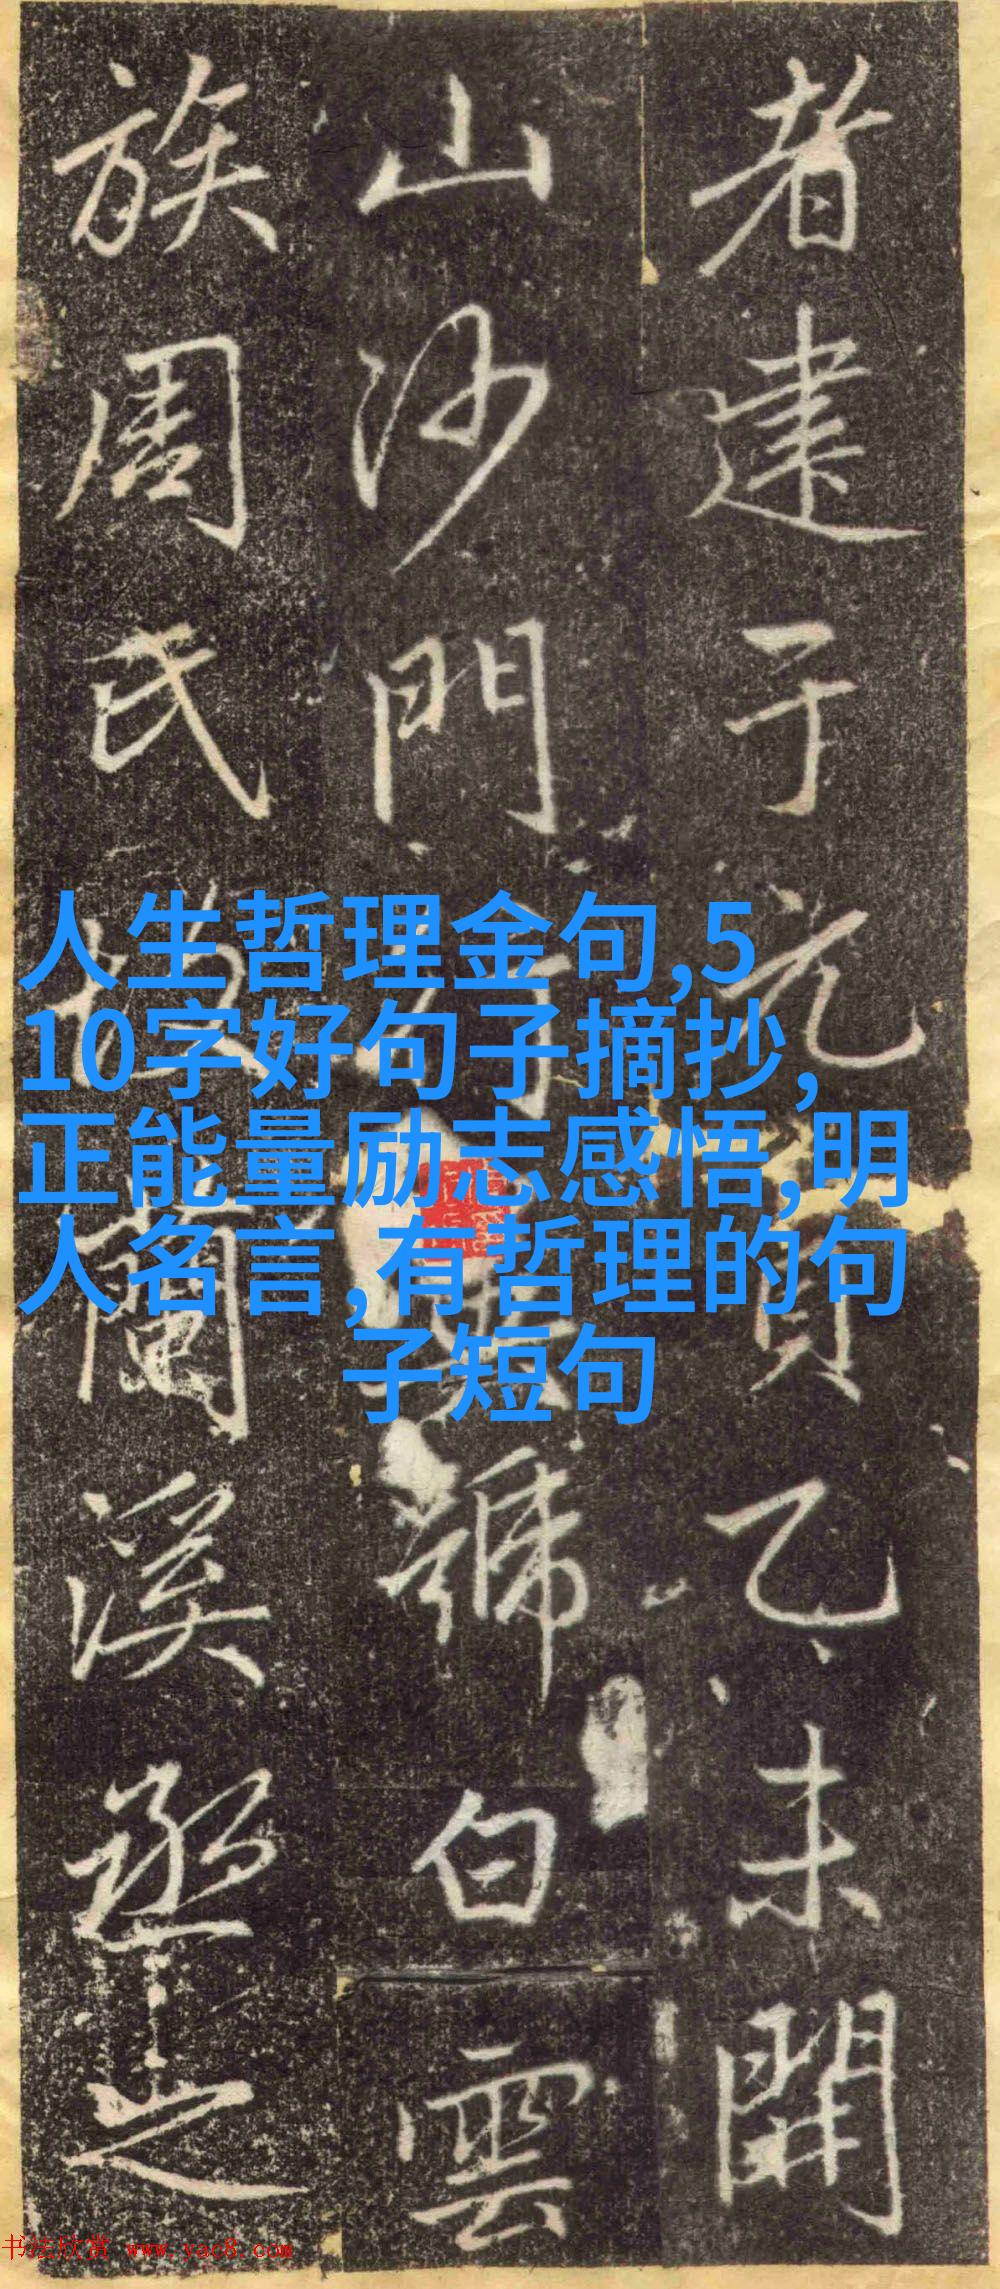 者建于元貞乙未開
山沙門號白雲
族周氏蘭溪丞之
人生哲理金句,5
10字好句子摘抄,
正能量励志感悟,明
人名言,有哲理的句
子短句
书法欣赏 www.yac8.com